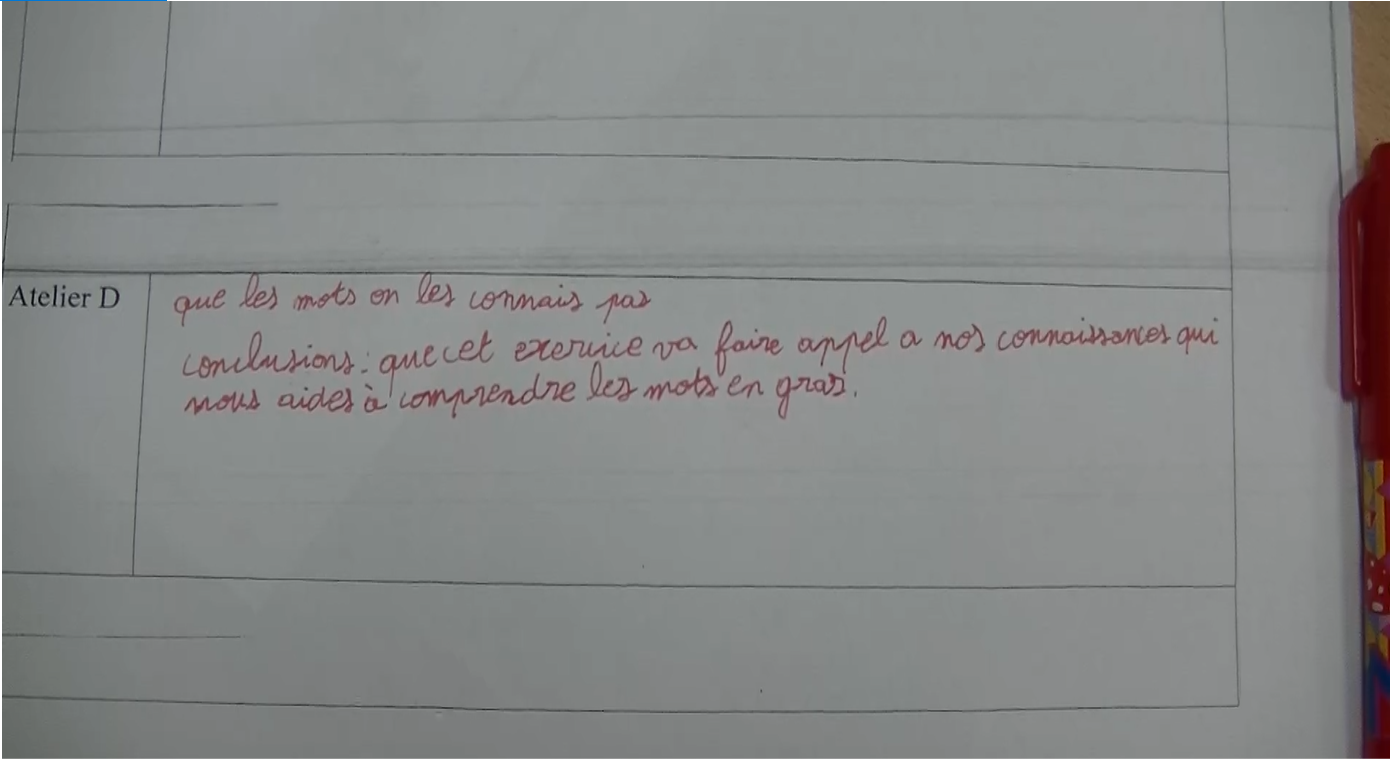 Atelier D
que les mots on les connais pas
conclusions : que cet exercice va faire appel a nos connaissances qui
nous aides à comprendre les mots en gras.